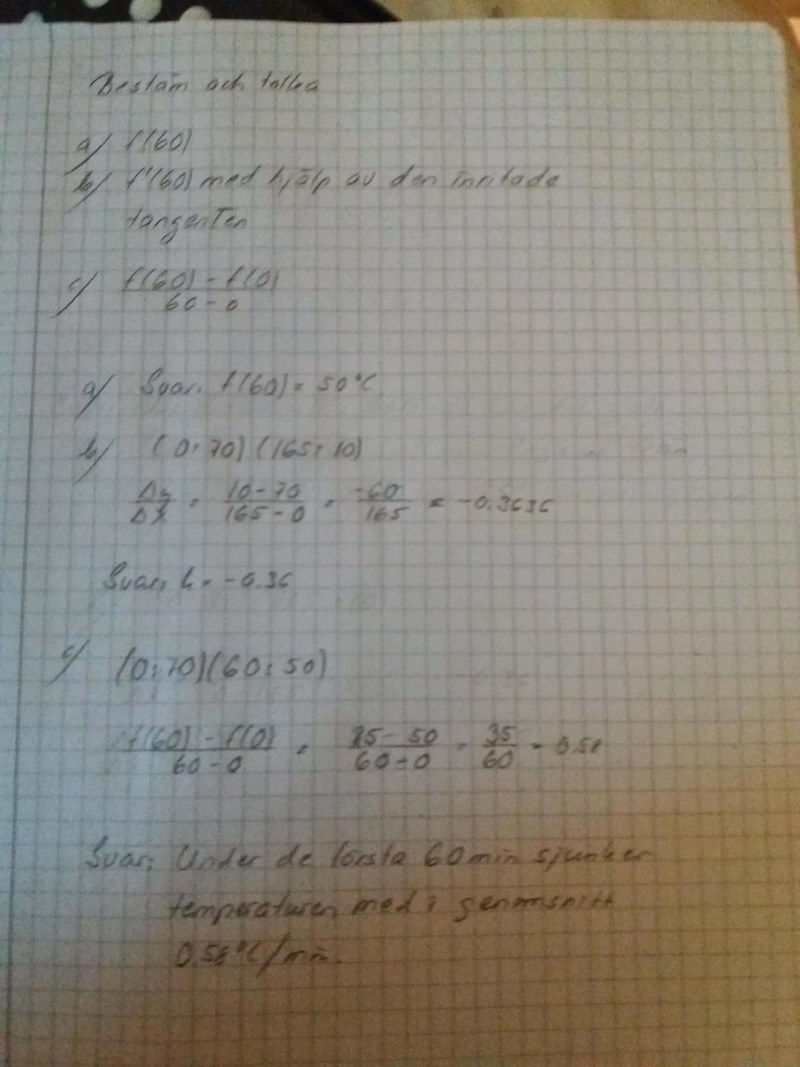 Bestäm och tolka
a) f(60)
b) f'(60) med hjälp av den inritade
tangenten
c) f(60) - f(0) / 60 - 0
a) Svar: f(60) = 50°C
b) (0; 70) (165; 10)
Δy/Δx = 10-70 / 165-0 = -60/165 = -0.3636
Svar: k = -0.36
c) (0; 70) (60; 50)
f(60) - f(0) / 60 - 0 = 85 - 50 / 60 - 0 = 35/60 = 0.58
Svar: Under de första 60 min sjunker
temperaturen med i genomsnitt
0.58°C/min.